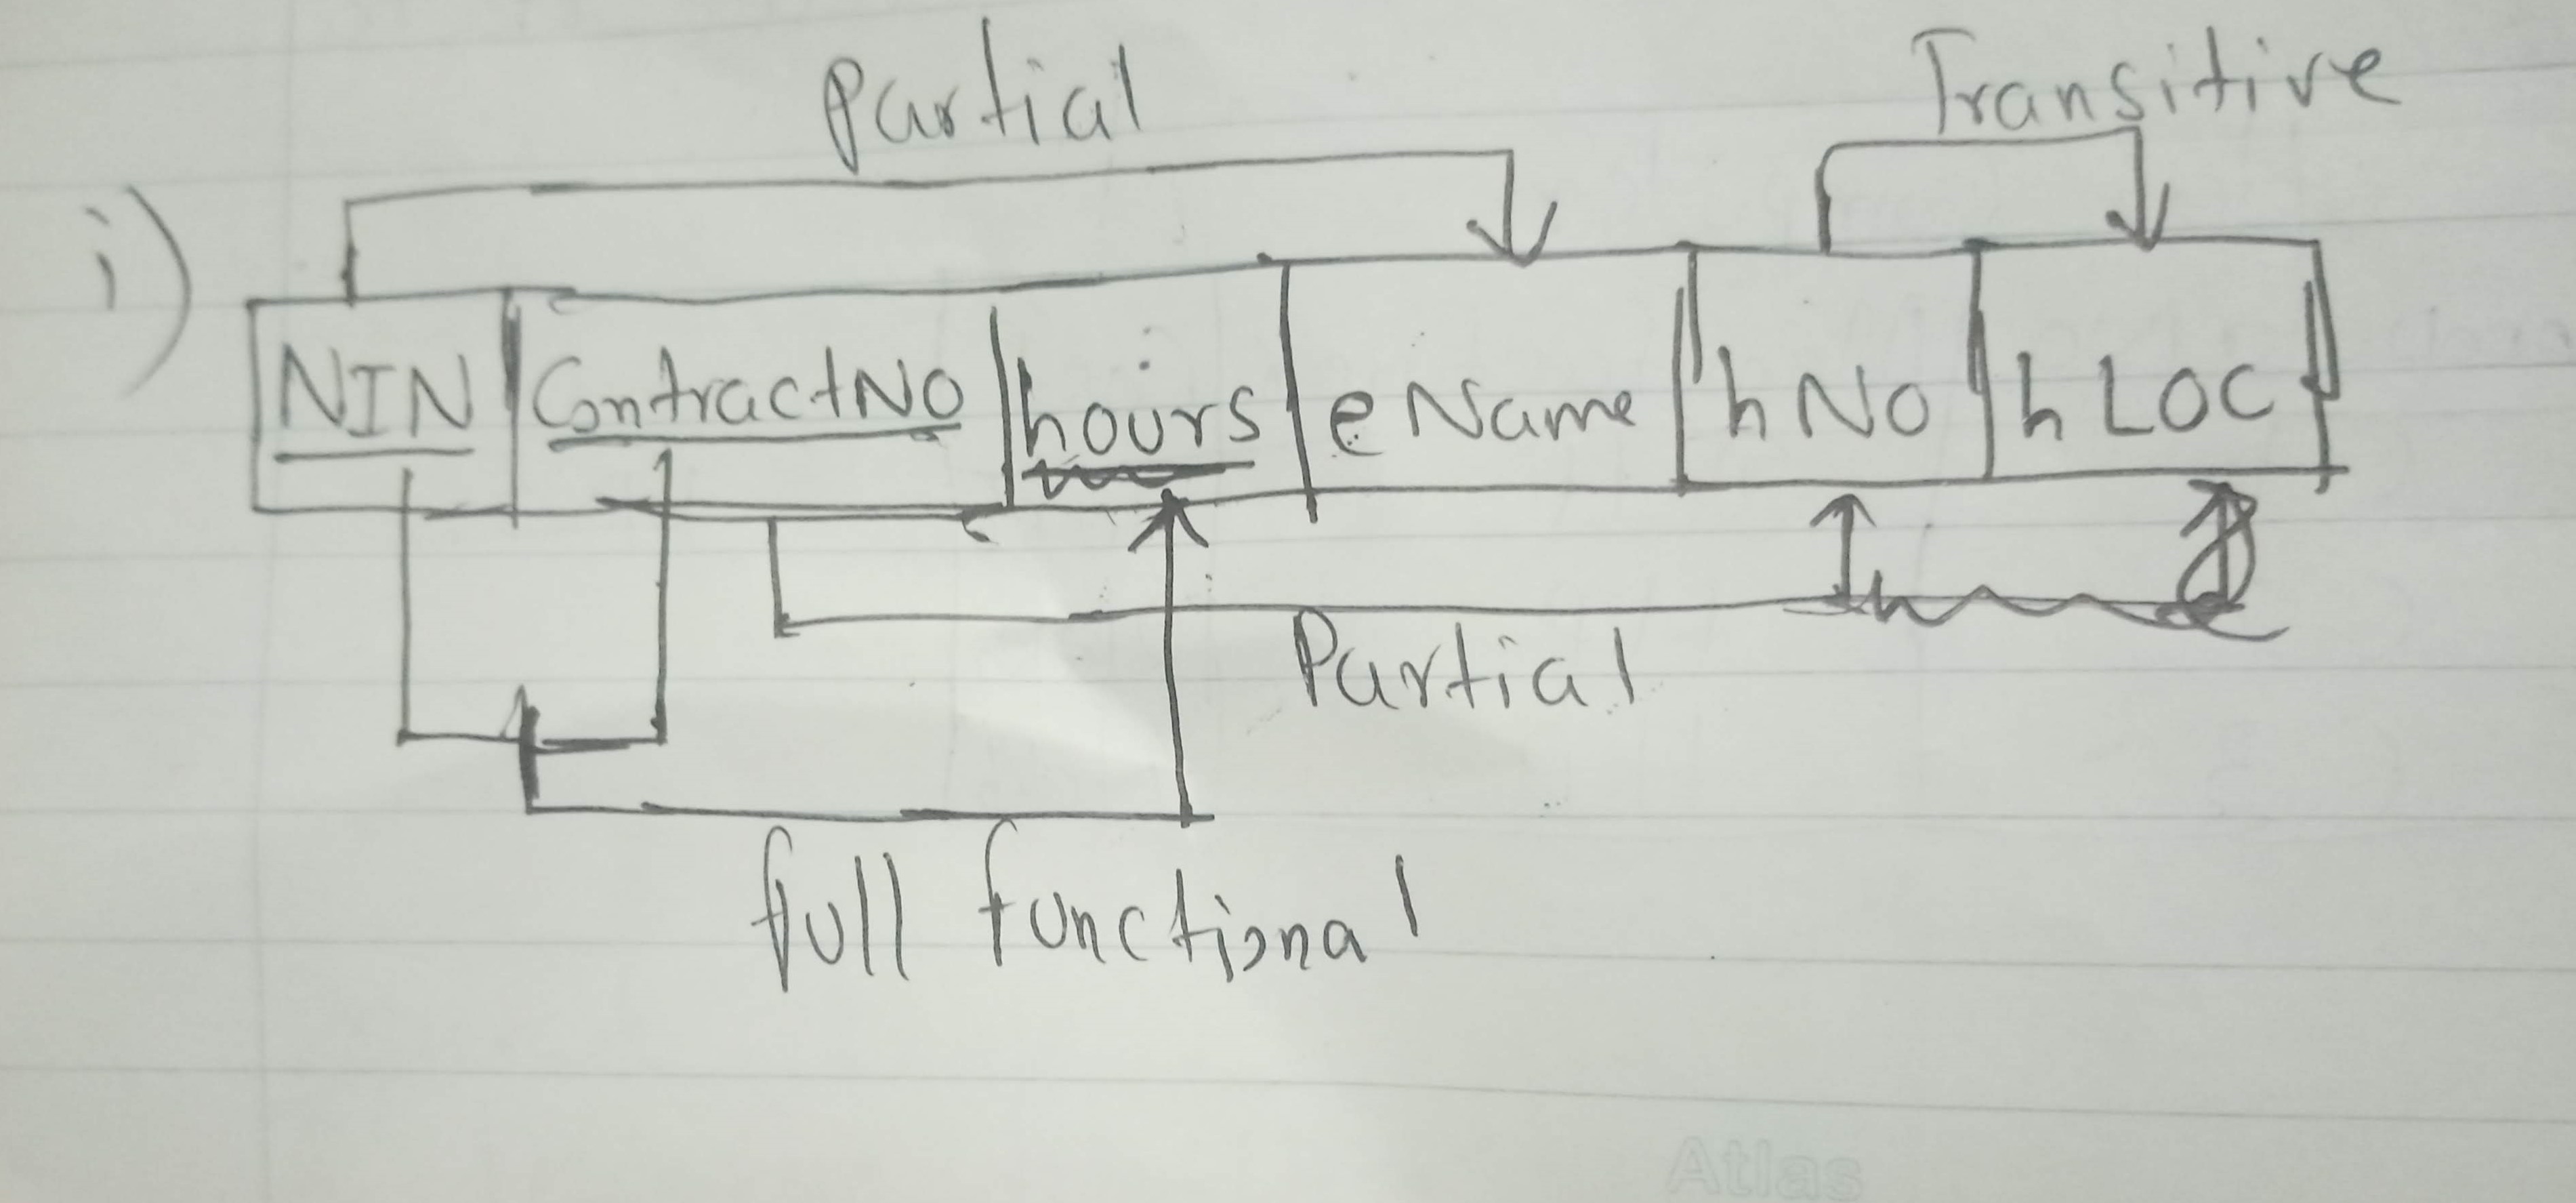 Partial
Transitive
i)
NIN ContractNO hours eName hNo hLOC
Partial
full functional
Atlas